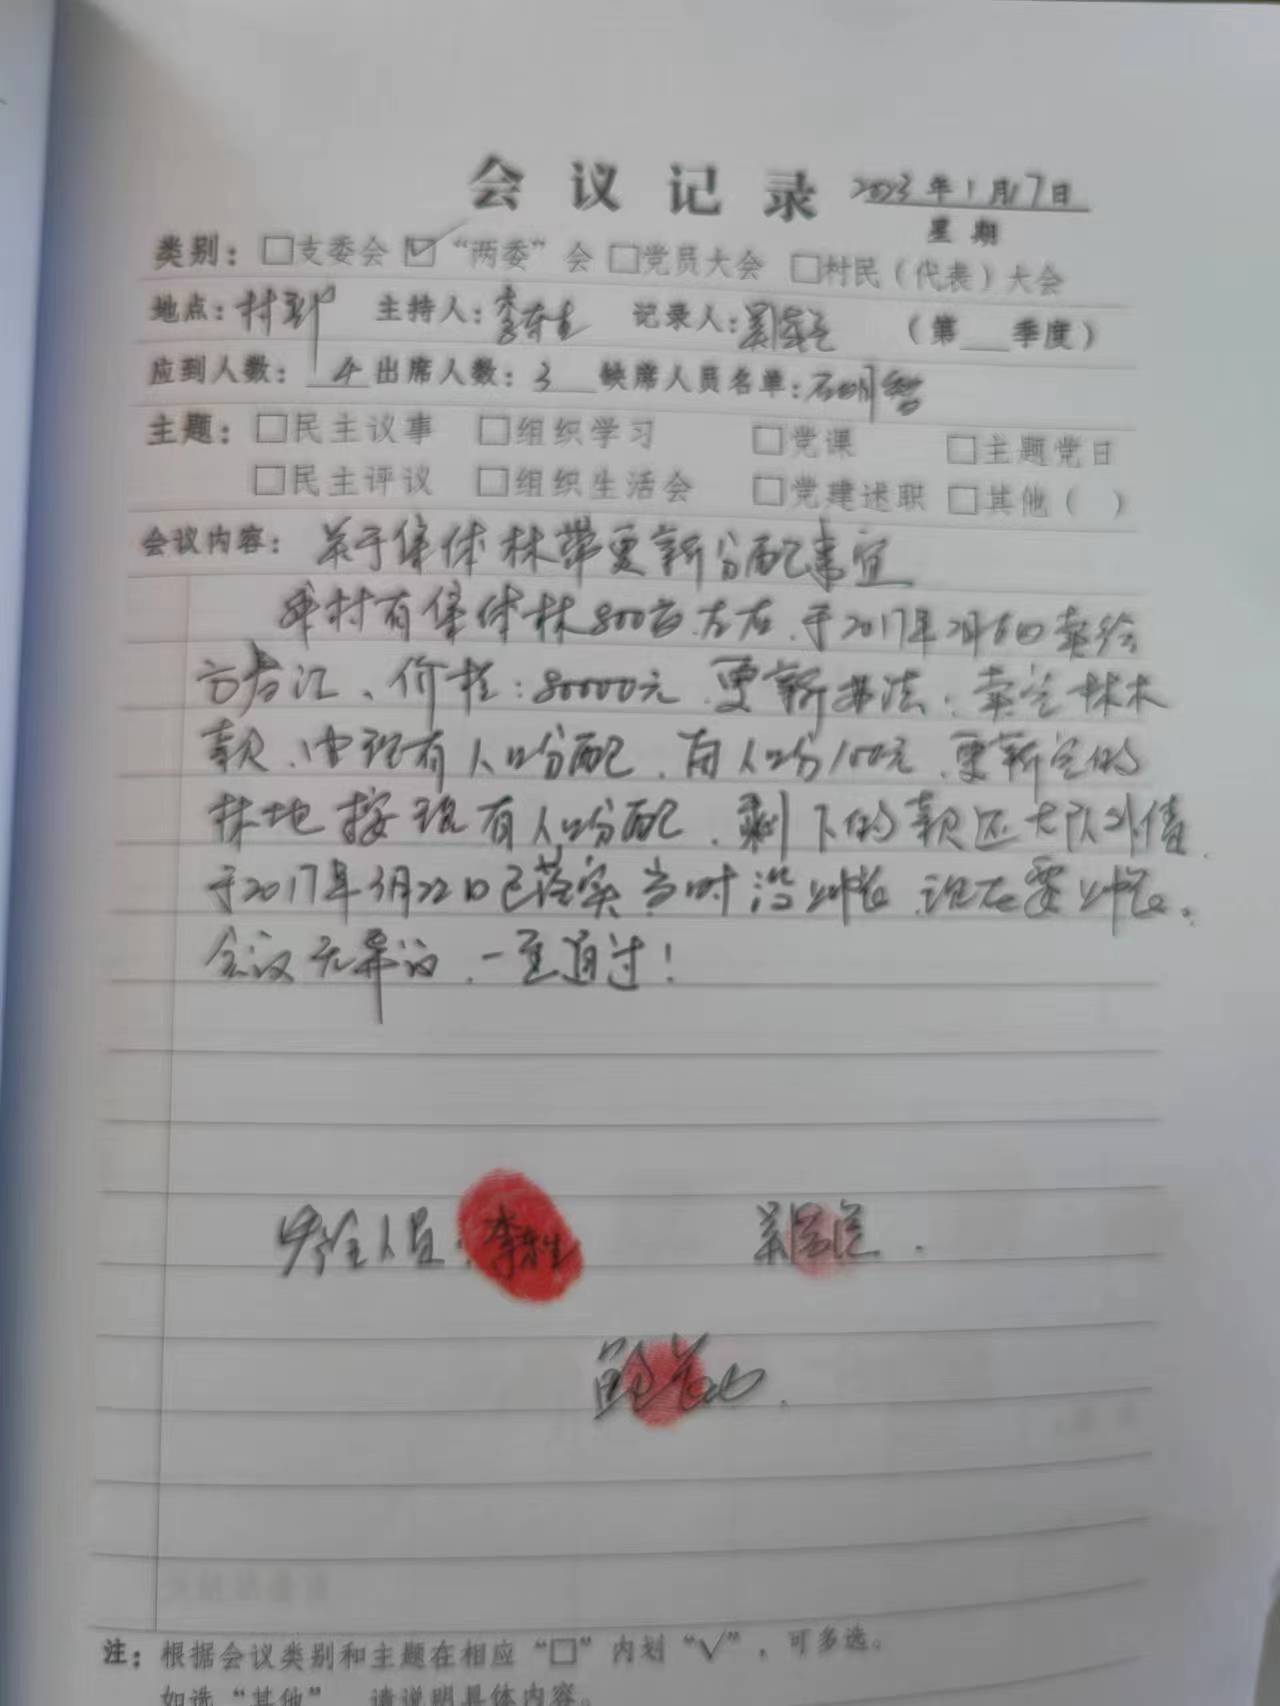 会议记录 2023年1月17日
星期
类别：□支委会 ☑“两委”会 □党员大会 □村民（代表）大会
地点：村部 主持人：李东生 记录人： （第 季度）
应到人数：4 出席人数：3 缺席人员名单：石明智
主题：□民主议事 □组织学习 □党课 □主题党日
□民主评议 □组织生活会 □党建述职 □其他（ ）
会议内容：关于集体林带更新分配事宜
我村有集体林800亩左右，于2017年2月6日卖给
价格：80000元，更新办法：卖完林木
款，由现有人口分配，每人口分100元，更新完的
林地按现有人口分配，剩下的款还大队外债，
于2017年3月22日已落实当时没，现在要。
会议无异议，一至通过！
参会人员：李东生
注：根据会议类别和主题在相应“□”内划“√”，可多选。
如选“其他”，请说明具体内容。